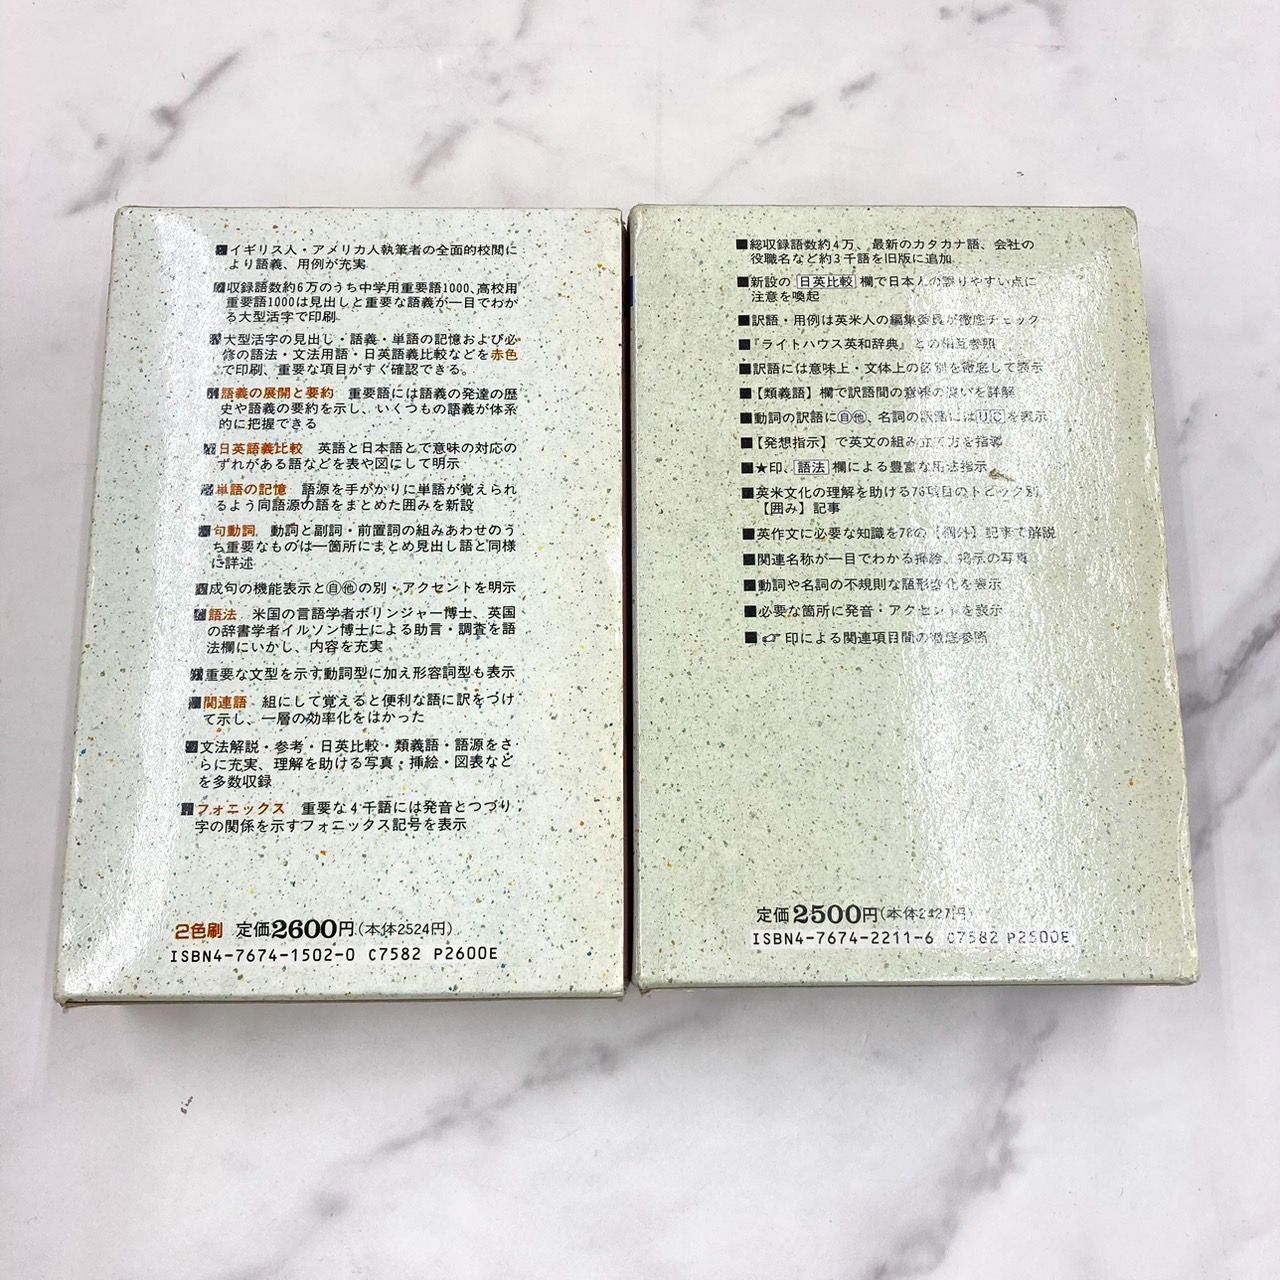 ■イギリス人・アメリカ人執筆者の全面的校閲に
より語義、用例が充実
■収録語数約6万のうち中学用重要語1000、高校用
重要語1000は見出しと重要な語義が一目でわか
る大型活字で印刷
■大型活字の見出し・語義・単語の記憶および必
修の語法・文法用語・日英語義比較などを赤色
で印刷、重要な項目がすぐ確認できる。
■語義の展開と要約 重要語には語義の発達の歴
史や語義の要約を示し、いくつもの語義が体系
的に把握できる
■日英語義比較 英語と日本語とで意味の対応の
ずれがある語などを表や図にして明示
■単語の記憶 語源を手がかりに単語が覚えられ
るよう同語源の語をまとめた囲みを新設
■句動詞 動詞と副詞・前置詞の組みあわせのう
ち重要なものは一箇所にまとめ見出し語と同様
に詳述
■成句の機能表示と㊀自他の別・アクセントを明示
■語法 米国の言語学者ボリンジャー博士、英国
の辞書学者イルソン博士による助言・調査を語
法欄にいかし、内容を充実
■重要な文型を示す動詞型に加え形容詞型も表示
■関連語 組にして覚えると便利な語に訳をつけ
て示し、一層の効率化をはかった
■文法解説・参考・日英比較・類義語・語源をさ
らに充実、理解を助ける写真・挿絵・図表など
を多数収録
■フォニックス 重要な4千語には発音とつづり
字の関係を示すフォニックス記号を表示
2色刷 定価2600円(本体2524円)
ISBN4-7674-1502-0 C7582 P2600E
■総収録語数約4万、最新のカタカナ語、会社の
役職名など約3千語を旧版に追加
■新設の 日英比較 欄で日本人の誤りやすい点に
注意を喚起
■訳語・用例は英米人の編集委員が徹底チェック
■『ライトハウス英和辞典』との相互参照
■訳語には意味上・文体上の区別を徹底して表示
■【類義語】欄で訳語間の意味の違いを詳解
■動詞の訳語に自他、名詞の訳語にはU C を表示
■【発想指示】で英文の組み立て方を指導
■★印、語法 欄による豊富な用法指示
■英米文化の理解を助ける76項目のトピック別
【囲み】記事
■英作文に必要な知識を78の【欄外】記事で解説
■関連名称が一目でわかる挿絵、掲示の写真
■動詞や名詞の不規則な語形変化を表示
■必要な箇所に発音・アクセントを表示
■☞印による関連項目間の徹底参照
定価2500円(本体2427円)
ISBN4-7674-2211-6 C7582 P2500E